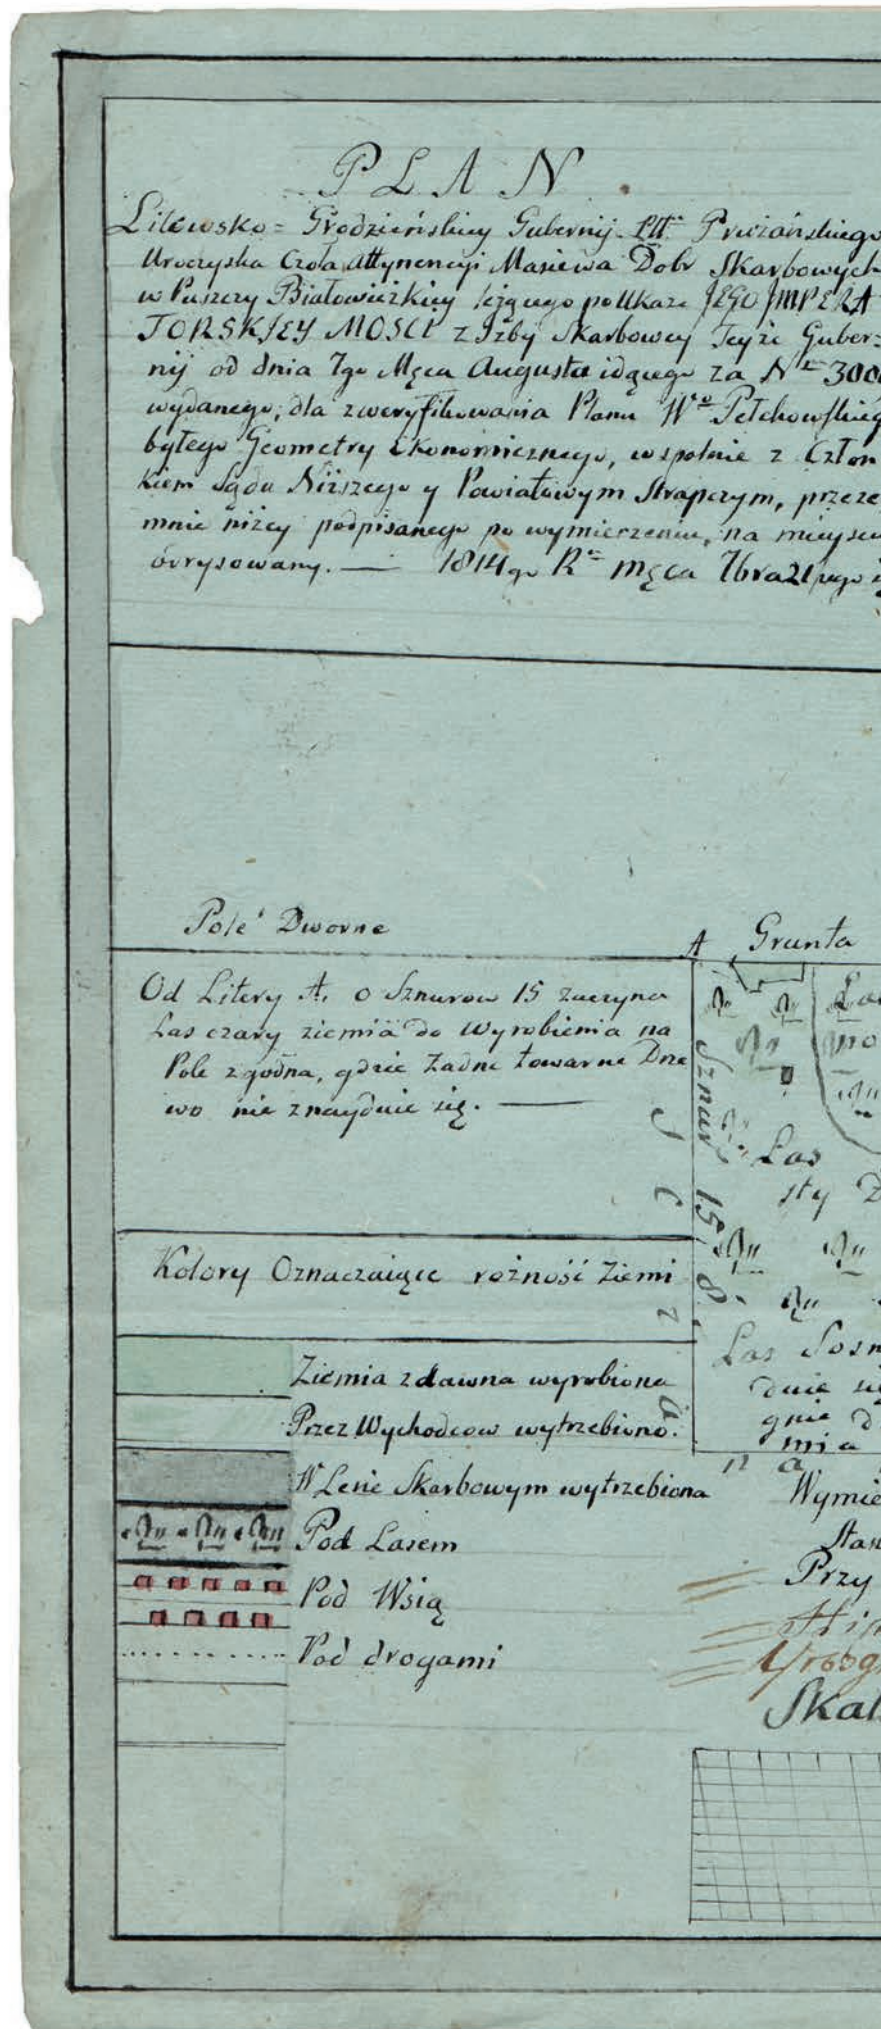 PLAN
Litewsko = Grodzieńskiey Gubernij. Ptt. Prużańskiego
Uroczyska Czoła Attynencyi Masiewa Dobr Skarbowych
w Puszczy Białowiezkiey leżącego po Ukazie JEGO JMPERA
TORSKJEY MOSCI z Jzby Skarbowey Teyże Guber=
nij od dnia 7go Męca Augusta idącego za No 300
wydanego, dla zweryfikowania Planu Wo Petchowskieg
byłego Geometry Ekonomicznego, wspolnie z Człon
kiem Sądu Niższego y Powiatowym Strapczym, przeze
mnie niżey podpisanego po wymierzeniu, na mieyscu
odrysowany. — 1814go R= męca 7bra 21
Pole Dworne
A Grunta
Od Litery A. o Sznurow 15 zaczyna
Las czary ziemia do wyrobienia na
Pole zgodna, gdzie żadne towarne Drze
wo nie znayduie się. —
Sznur 15. 8.
Las
sty
Kolory Oznaczaiące rożność Ziemi
Las Sosn
duie się
gnie d
mia
Ziemia zdawna wyrobiona
Przez Wychodcow wytrzebiono.
W Lesie Skarbowym wytrzebiona
Pod Lasem
Pod Wsią
Pod drogami
Wymie
Stan
Przy
Skal